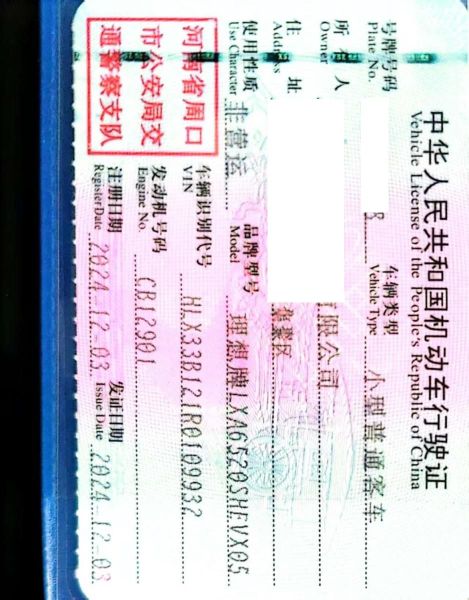 中华人民共和国机动车行驶证
Vehicle License of the People's Republic of China
号牌号码
Plate No.
车辆类型
Vehicle Type
小型普通客车
所有人
Owner
有限公司
住址
Address
使用性质
Use Character
非营运
品牌型号
Model
理想牌LXA6520SHEVX05
河南省周口
市公安局交
通警察支队
车辆识别代号
VIN
HLX33B121R0109932
发动机号码
Engine No.
CB12901
注册日期
Register Date
2024-12-03
发证日期
Issue Date
2024-12-03